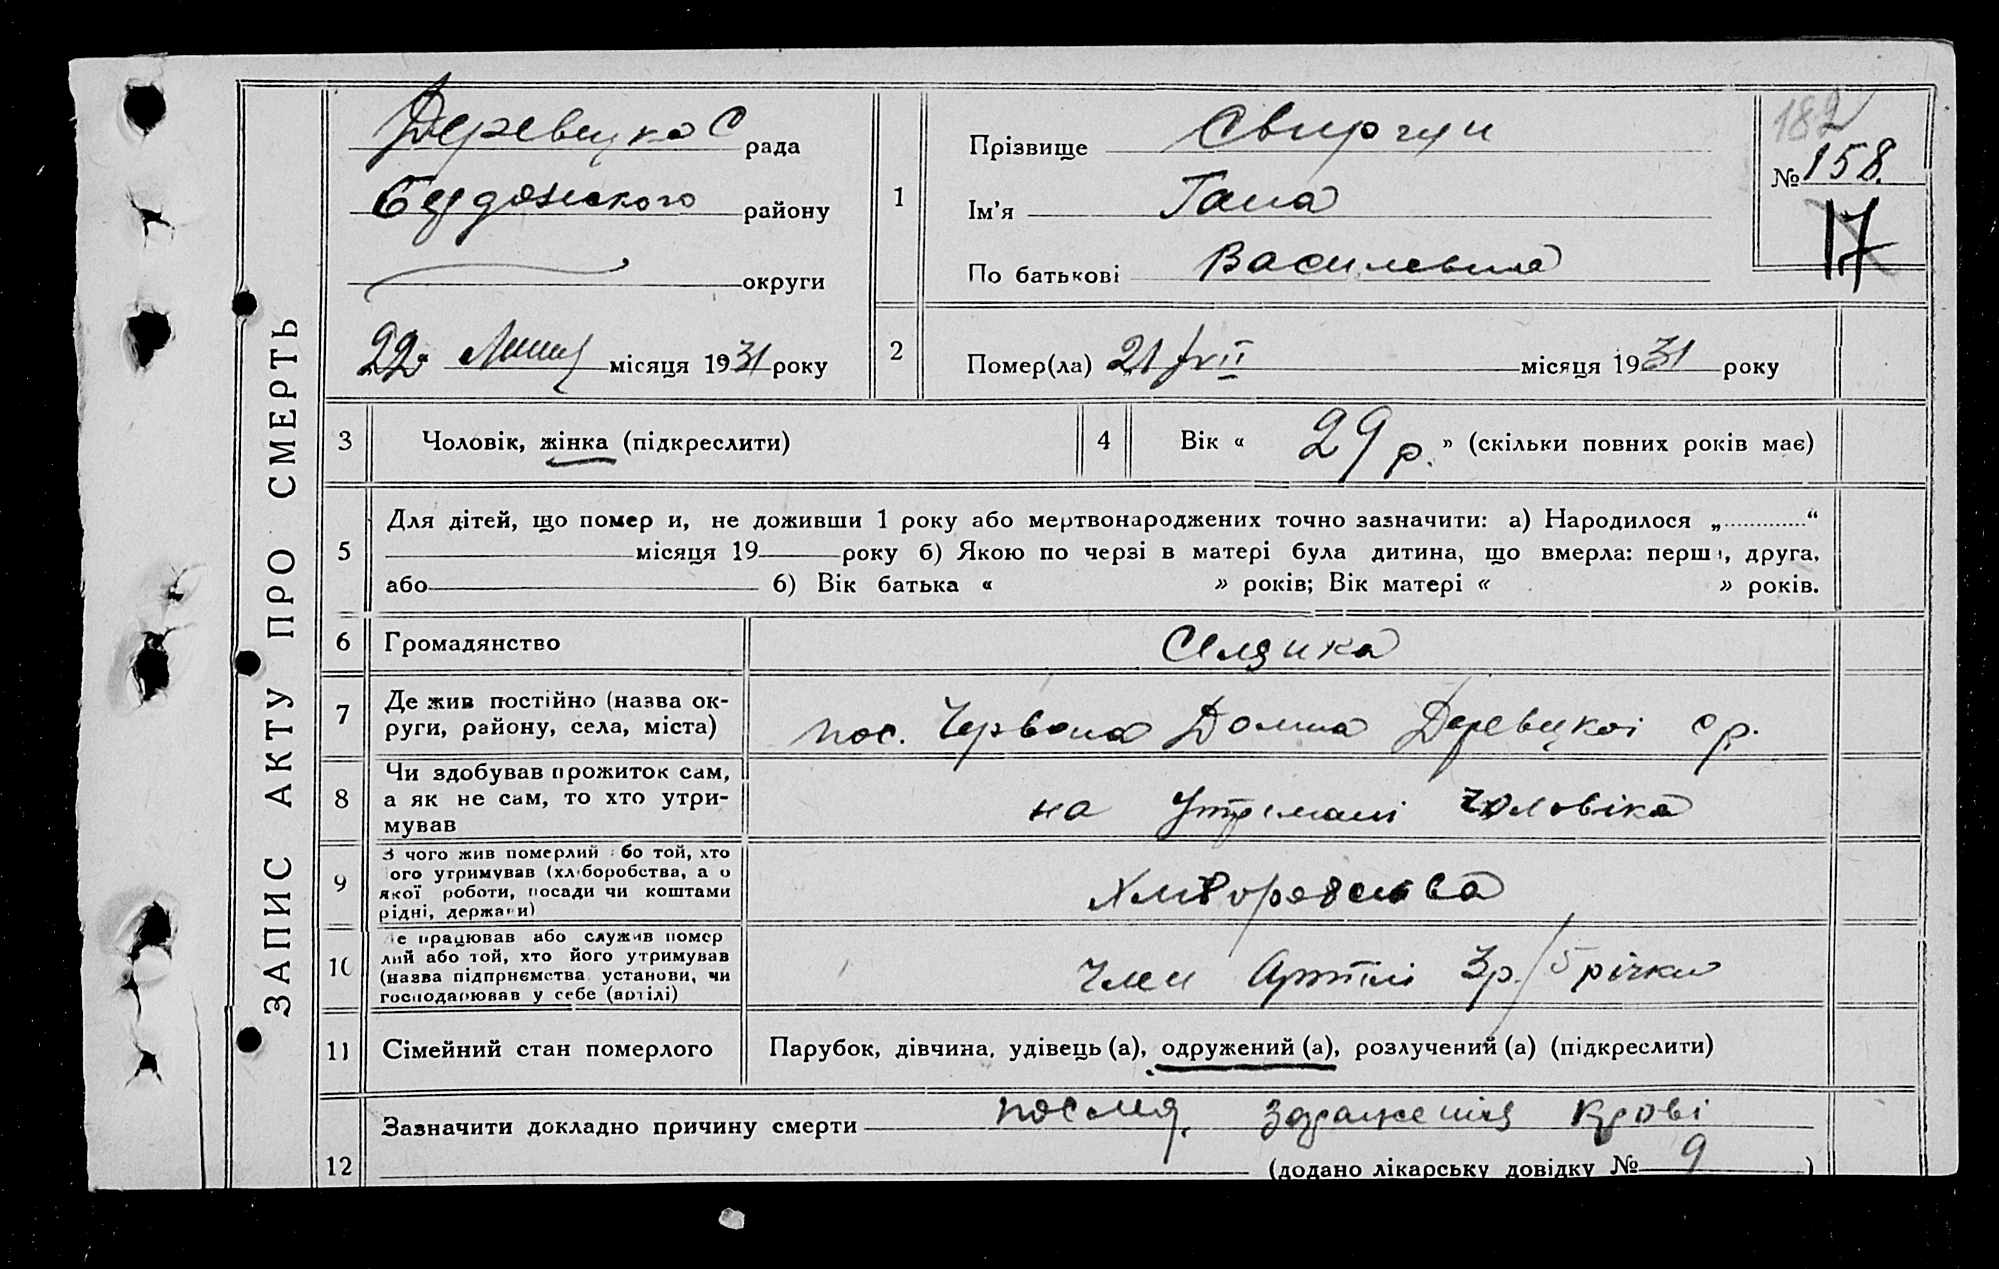 ЗАПИС АКТУ ПРО СМЕРТЬ
Деревецка С рада
району
округи
22 місяця 1931 року
1
Прізвище Свиргун
Ім'я Гана
По батькові Василевна
182
№ 158.
17
2
Помер(ла) 21/VII місяця 1931 року
3
Чоловік, жінка (підкреслити)
4
Вік « 29 р. » (скільки повних років має)
5
Для дітей, що помер и, не доживши 1 року або мертвонароджених точно зазначити: а) Народилося „ “
місяця 19 року б) Якою по черзі в матері була дитина, що вмерла: перш , друга,
або б) Вік батька « » років; Вік матері « » років.
6
Громадянство
Селянка
7
Де жив постійно (назва ок-
руги, району, села, міста)
пос. Червона Долина Деревецкоі с р.
8
Чи здобував прожиток сам,
а як не сам, то хто утри-
мував
на утримані чоловіка
9
З чого жив померлий бо той, хто
ого утримував (хліборобства, а о
якої роботи, посади чи коштами
рідні, держави)
10
е працював або служив помер
лий або той, хто його утримував
(назва підприємства установи, чи
господарював у себе (артілі)
Член Артілі Зр./5 річки
11
Сімейний стан померлого
Парубок, дівчина, удівець (а), одружений (а), розлучений (а) (підкреслити)
12
Зазначити докладно причину смерти зараженія крові
(додано лікарську довідку № 9 )